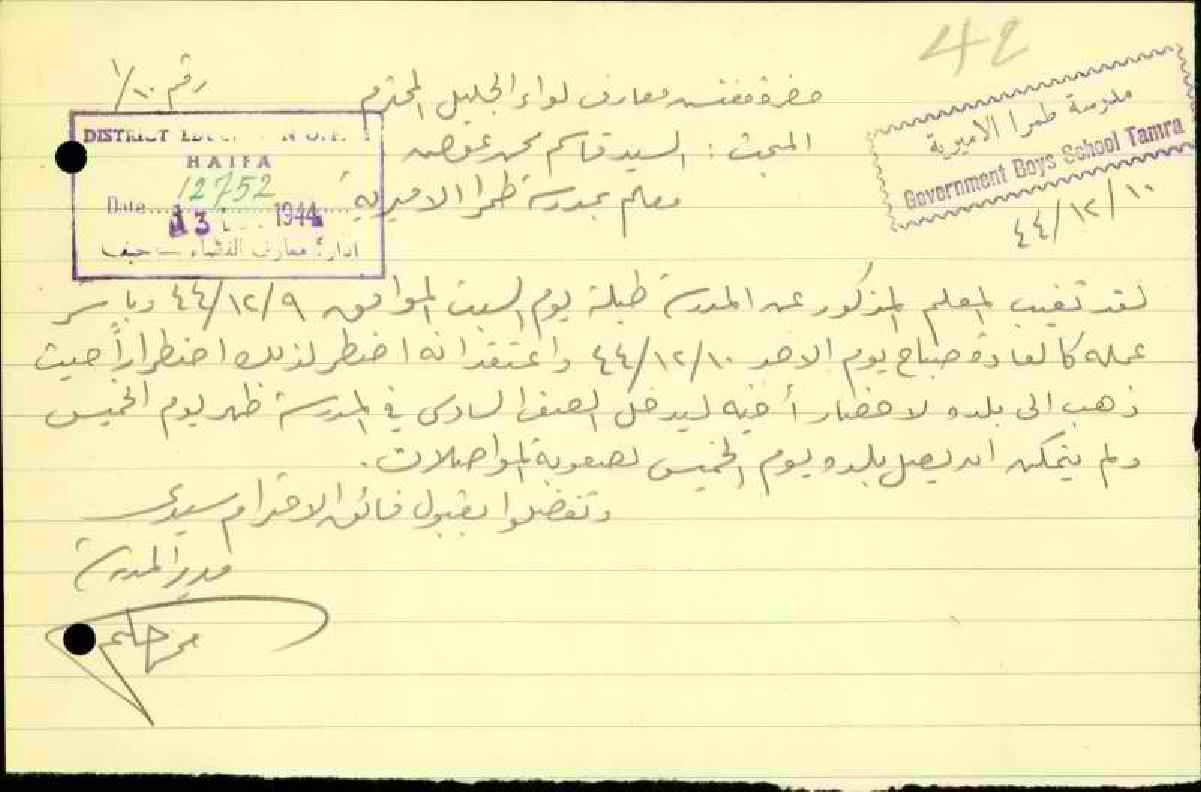 42
حضرة مفتش معارف لواء الجليل المحترم
رقم ١٠/١
مدرسة طمرا الاميرية
Government Boys School Tamra
٤٤/١٢/١٠
DISTRICT
HAIFA
12752
Date 13 1944
ادارة معارف القضاء - حيفا
المبحث : السيد قاسم محمد عوض
معلم بمدرسة طمرا الاميرية
لقد تغيب المعلم المذكور عن المدرسة طيلة يوم السبت الموافق ٤٤/١٢/٩ وباشر
عمله كالعادة صباح يوم الاحد ٤٤/١٢/١٠ واعتقد انه اضطر لذلك اضطراراً حيث
ذهب الى بلده لاحضار أخيه ليدخل الصف السادس في المدرسة ظهر يوم الخميس
ولم يتمكن ان يصل بلده يوم الخميس لصعوبة المواصلات .
وتفضلوا بقبول فائق الاحترام سيدي
مدير المدرسة